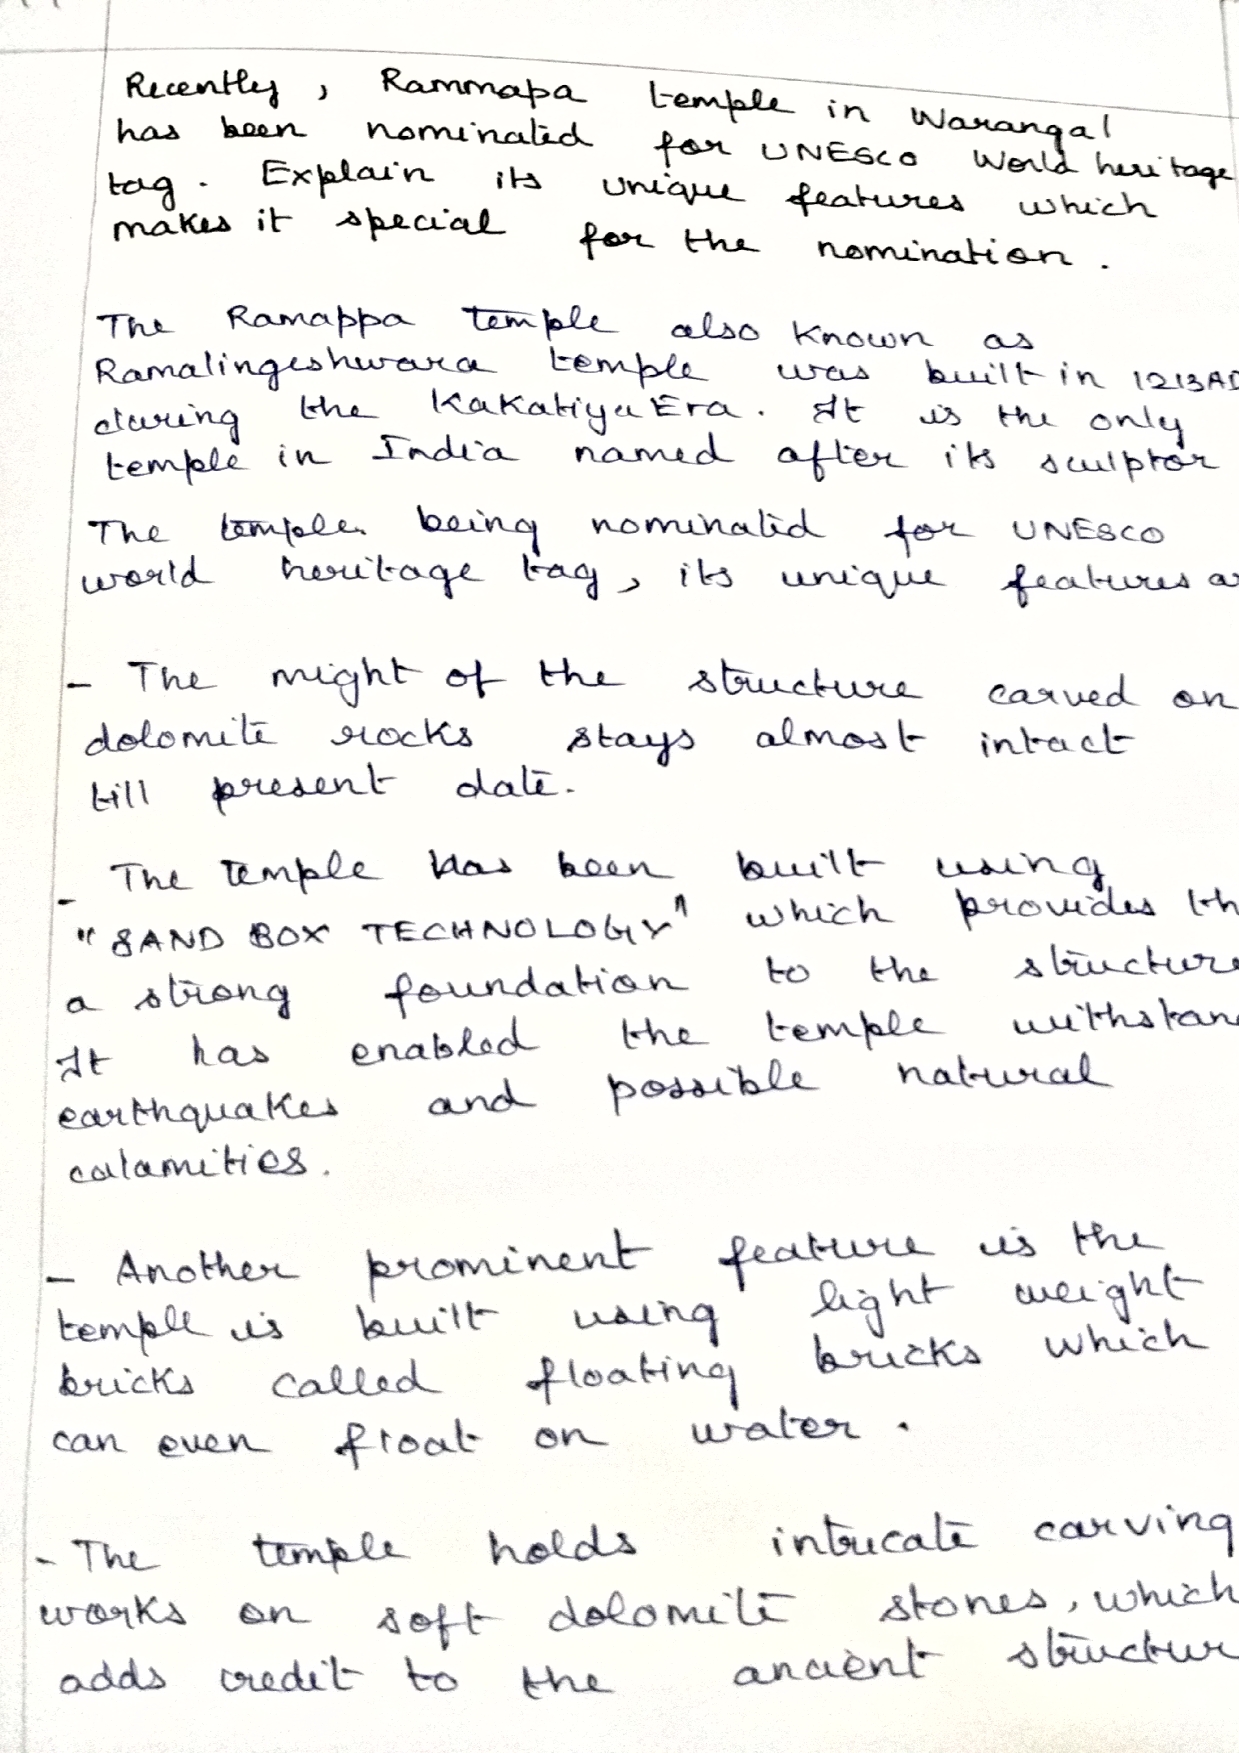 Recently, Rammapa temple in Warangal
has been nominated for UNESCO World heritage
tag. Explain its unique features which
makes it special for the nomination.
The Ramappa temple also known as
Ramalingeshwara temple was built in 1213AD
during the Kakatiya Era. It is the only
temple in India named after its sculptor
The temple being nominated for UNESCO
world heritage tag, its unique features
- The might of the structure carved on
dolomite rocks stays almost intact
till present date.
- The temple has been built using
"SAND BOX TECHNOLOGY" which provides
a strong foundation to the structure
It has enabled the temple
earthquakes and possible natural
calamities.
- Another prominent feature is the
temple is built using light weight
bricks called floating bricks which
can even float on water.
- The temple holds intricate carving
works on soft dolomite stones, which
adds credit to the ancient